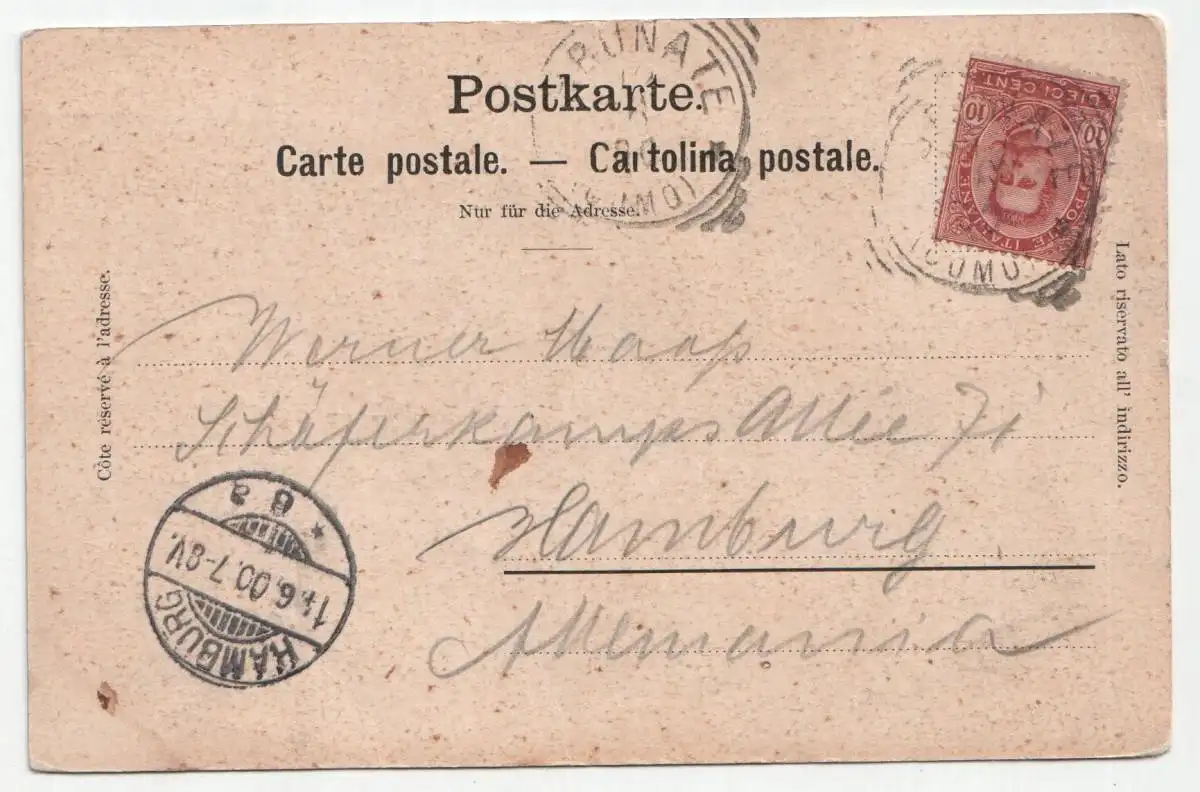 Postkarte.
Carte postale. — Cartolina postale.
Nur für die Adresse.
BRUNATE
(COMO)
DIECI CENT.
10 10
POSTE ITALIANE
(COMO)
Côte réservé à l'adresse.
Lato riservato all' indirizzo.
Werner Haap
Schäferkamps Allée 71
Hamburg
Allemania
HAMBURG
6.00.7-8V.
* 6 a